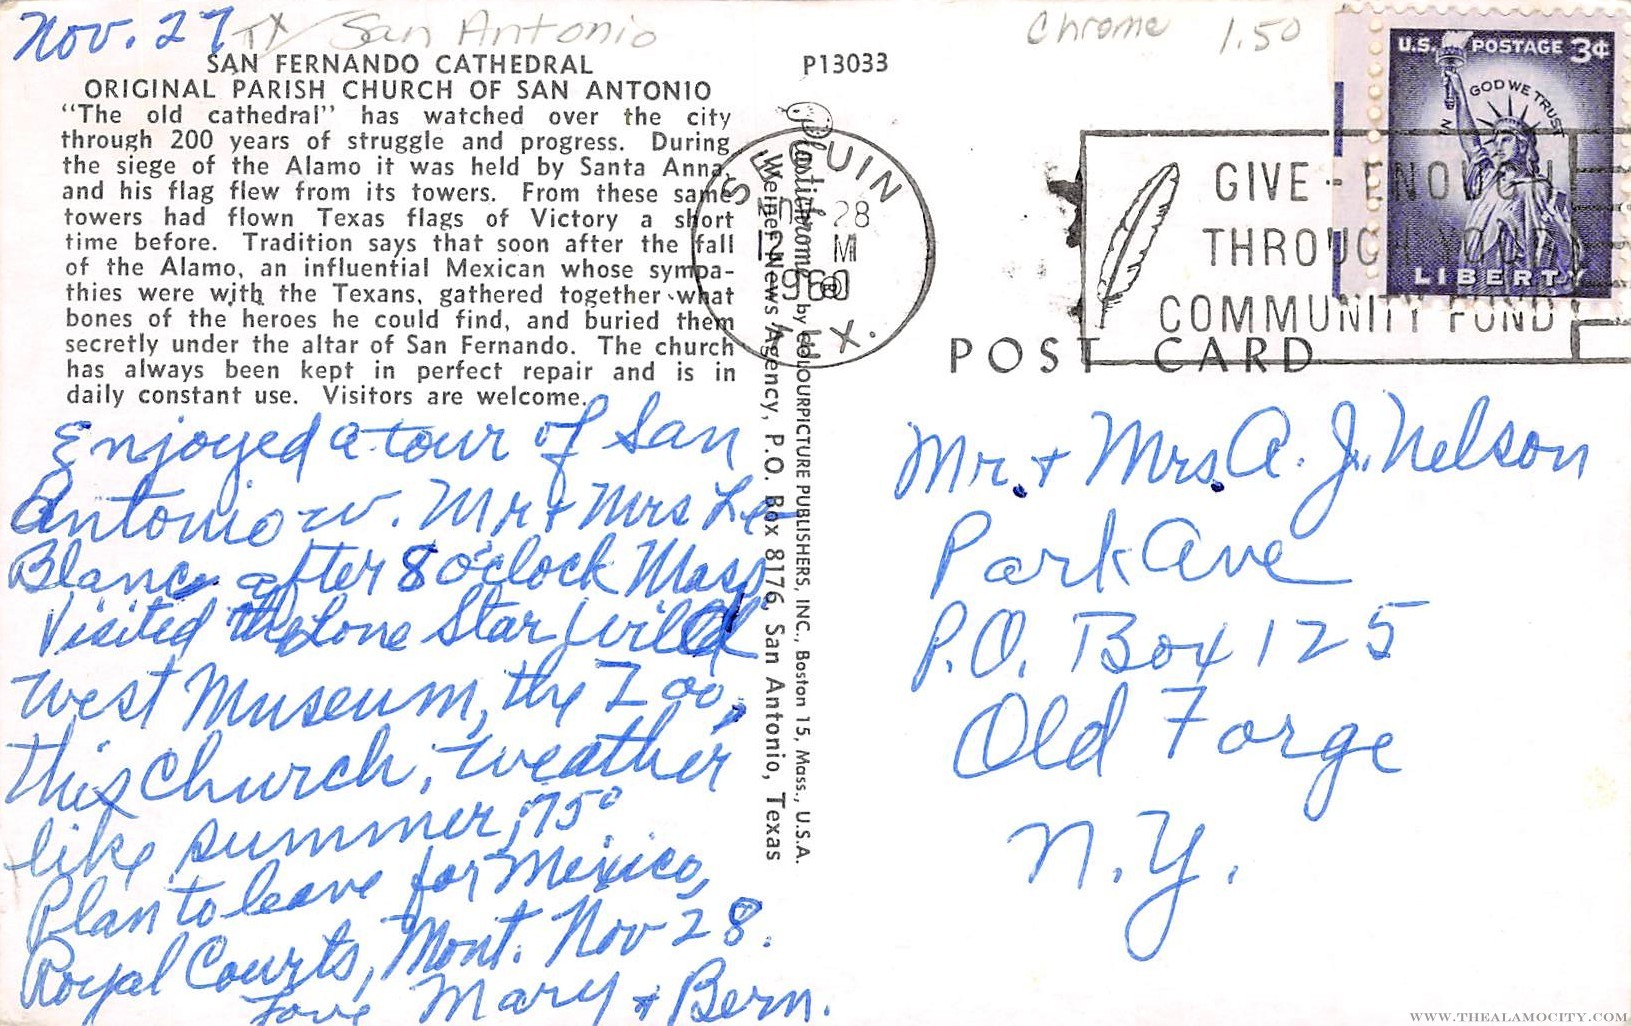 Nov. 27
TX San Antonio
Chrome 1.50
SAN FERNANDO CATHEDRAL
ORIGINAL PARISH CHURCH OF SAN ANTONIO
"The old cathedral" has watched over the city
through 200 years of struggle and progress. During
the siege of the Alamo it was held by Santa Anna,
and his flag flew from its towers. From these same
towers had flown Texas flags of Victory a short
time before. Tradition says that soon after the fall
of the Alamo, an influential Mexican whose sympa-
thies were with the Texans, gathered together what
bones of the heroes he could find, and buried them
secretly under the altar of San Fernando. The church
has always been kept in perfect repair and is in
daily constant use. Visitors are welcome.
Enjoyed a tour of San
Antonio w. Mr + Mrs Le-
Blanc after 8 o'clock Mass
Visited the Lone Star, Wild
West Museum, the Zoo,
this church, weather
like summer, 75°
Plan to leave for Mexico,
Royal Courts, Mont. Nov 28.
Love Mary + Bern.
P13033
Plastichrome ® by COLOURPICTURE PUBLISHERS, INC., Boston 15, Mass., U.S.A.
Weiner News Agency, P.O. Box 8176, San Antonio, Texas
SEGUIN
28
12 M
1960
TEX.
GIVE - ENOUGH
THROUGH YOUR
COMMUNITY FUND
U.S. POSTAGE 3¢
IN GOD WE TRUST
LIBERTY
POST CARD
Mr. + Mrs. A. J. Nelson
Park Ave
P.O. Box 125
Old Forge
N.Y.
WWW.THEALAMOCITY.COM